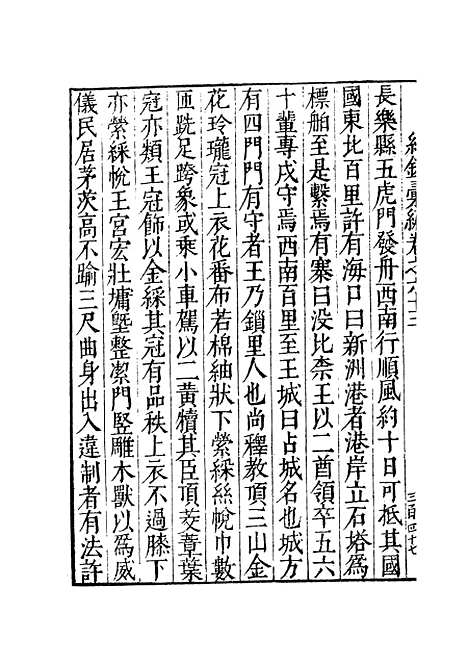 長樂縣五虎門發舟西南行順風約十日可抵其國
國東北百里許有海口曰新洲港者港岸立石塔爲
標舶至是繫焉有寨曰没比柰王以二酋領卒五六
十輩專戍守焉西南百里至王城曰占城名也城方
有四門門有守者王乃鎖里人也尚釋教頂三山金
花玲瓏冠上衣花番布若棉紬狀下縈綵絲帨巾數
匝跣足跨象或乘小車駕以二黄犢其臣頂茭蔁葉
冠亦類王冠飾以金綵其冠有品秩上衣不過膝下
亦縈綵帨王宮宏壯墉塈整潔門竪雕木獸以爲威
儀民居茅茨高不踰三尺曲身出入違制者有法許